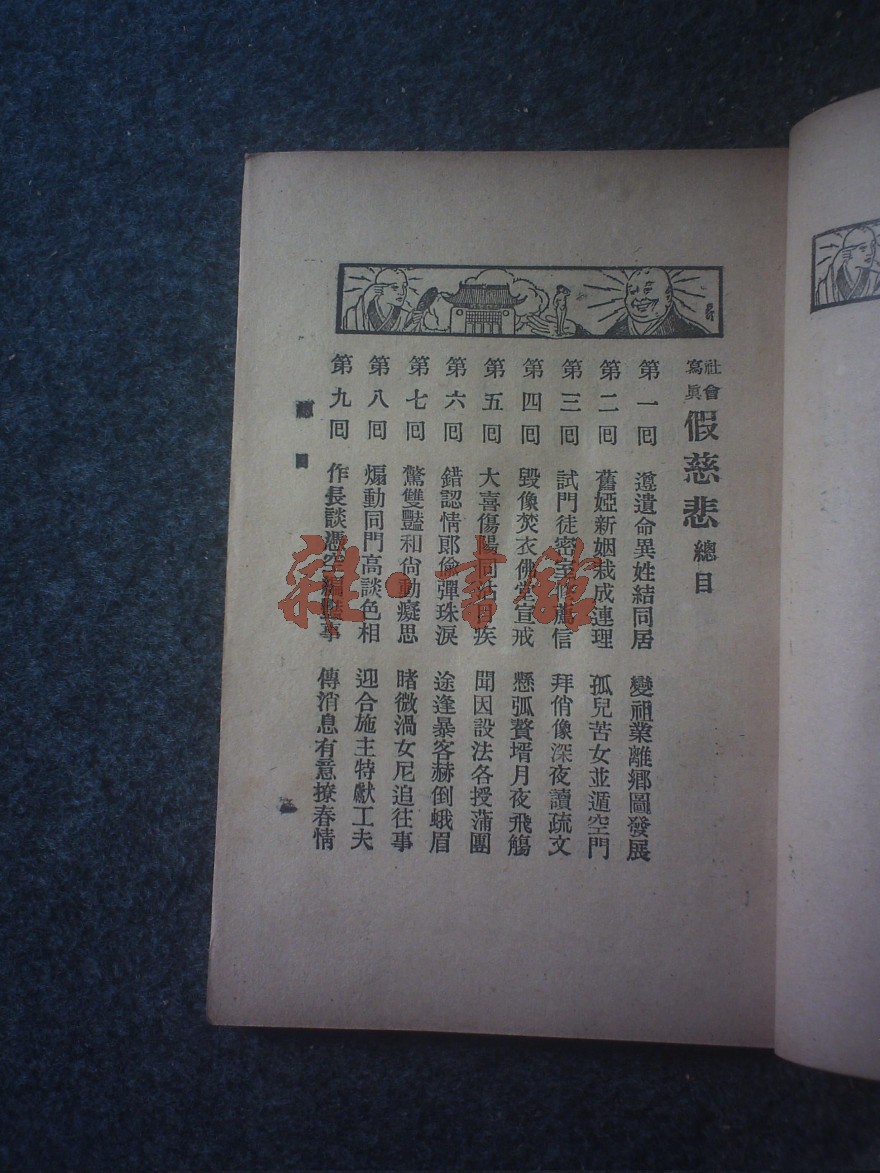 社會寫眞 假慈悲 總目
第一回 遵遺命異姓結同居 變祖業離鄉圖發展
第二回 舊婭新姻栽成連理 孤兒苦女並遁空門
第三回 試門徒密室修薦信 拜俏像深夜讀疏文
第四回 毀像焚衣佛堂宣戒 懸弧贅壻月夜飛觴
第五回 大喜傷陽同治目疾 聞因設法各授蒲團
第六回 錯認情郎偸彈珠淚 途逢暴客赫倒蛾眉
第七回 驚雙豔和尙動癡思 睹微渦女尼追往事
第八回 煽動同門高談色相 迎合施主特獻工夫
第九回 作長談憑空編豔事 傳消息有意撩春情
目
一
雜·書館